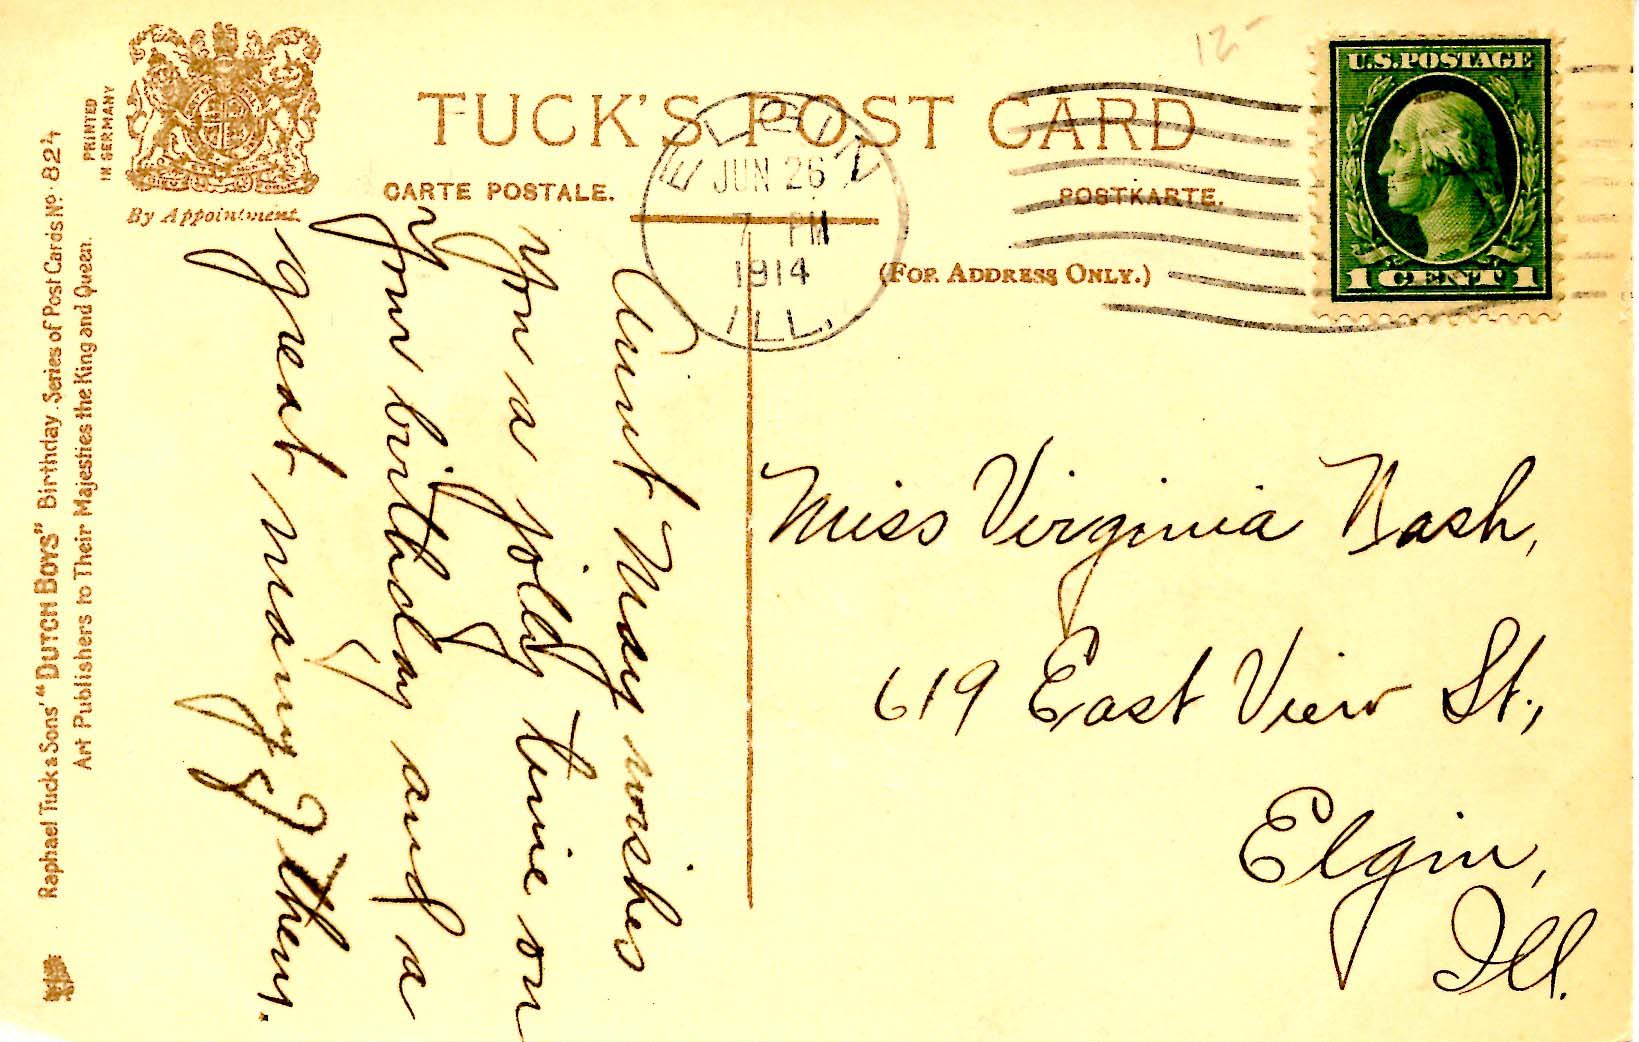 12-
U.S.POSTAGE
1 CENT 1
TUCK'S POST CARD
CARTE POSTALE.
POSTKARTE.
(FOR ADDRESS ONLY.)
ELGIN
JUN 26
7 PM
1914
ILL.
By Appointment.
PRINTED
IN GERMANY
Raphael Tuck & Sons' "DUTCH BOYS" Birthday Series of Post Cards No. 824
Art Publishers to Their Majesties the King and Queen.
Aunt May wishes
you a jolly time on
your birthday and a
great many of them.
Miss Virginia Nash,
619 East View St.,
Elgin,
Ill.